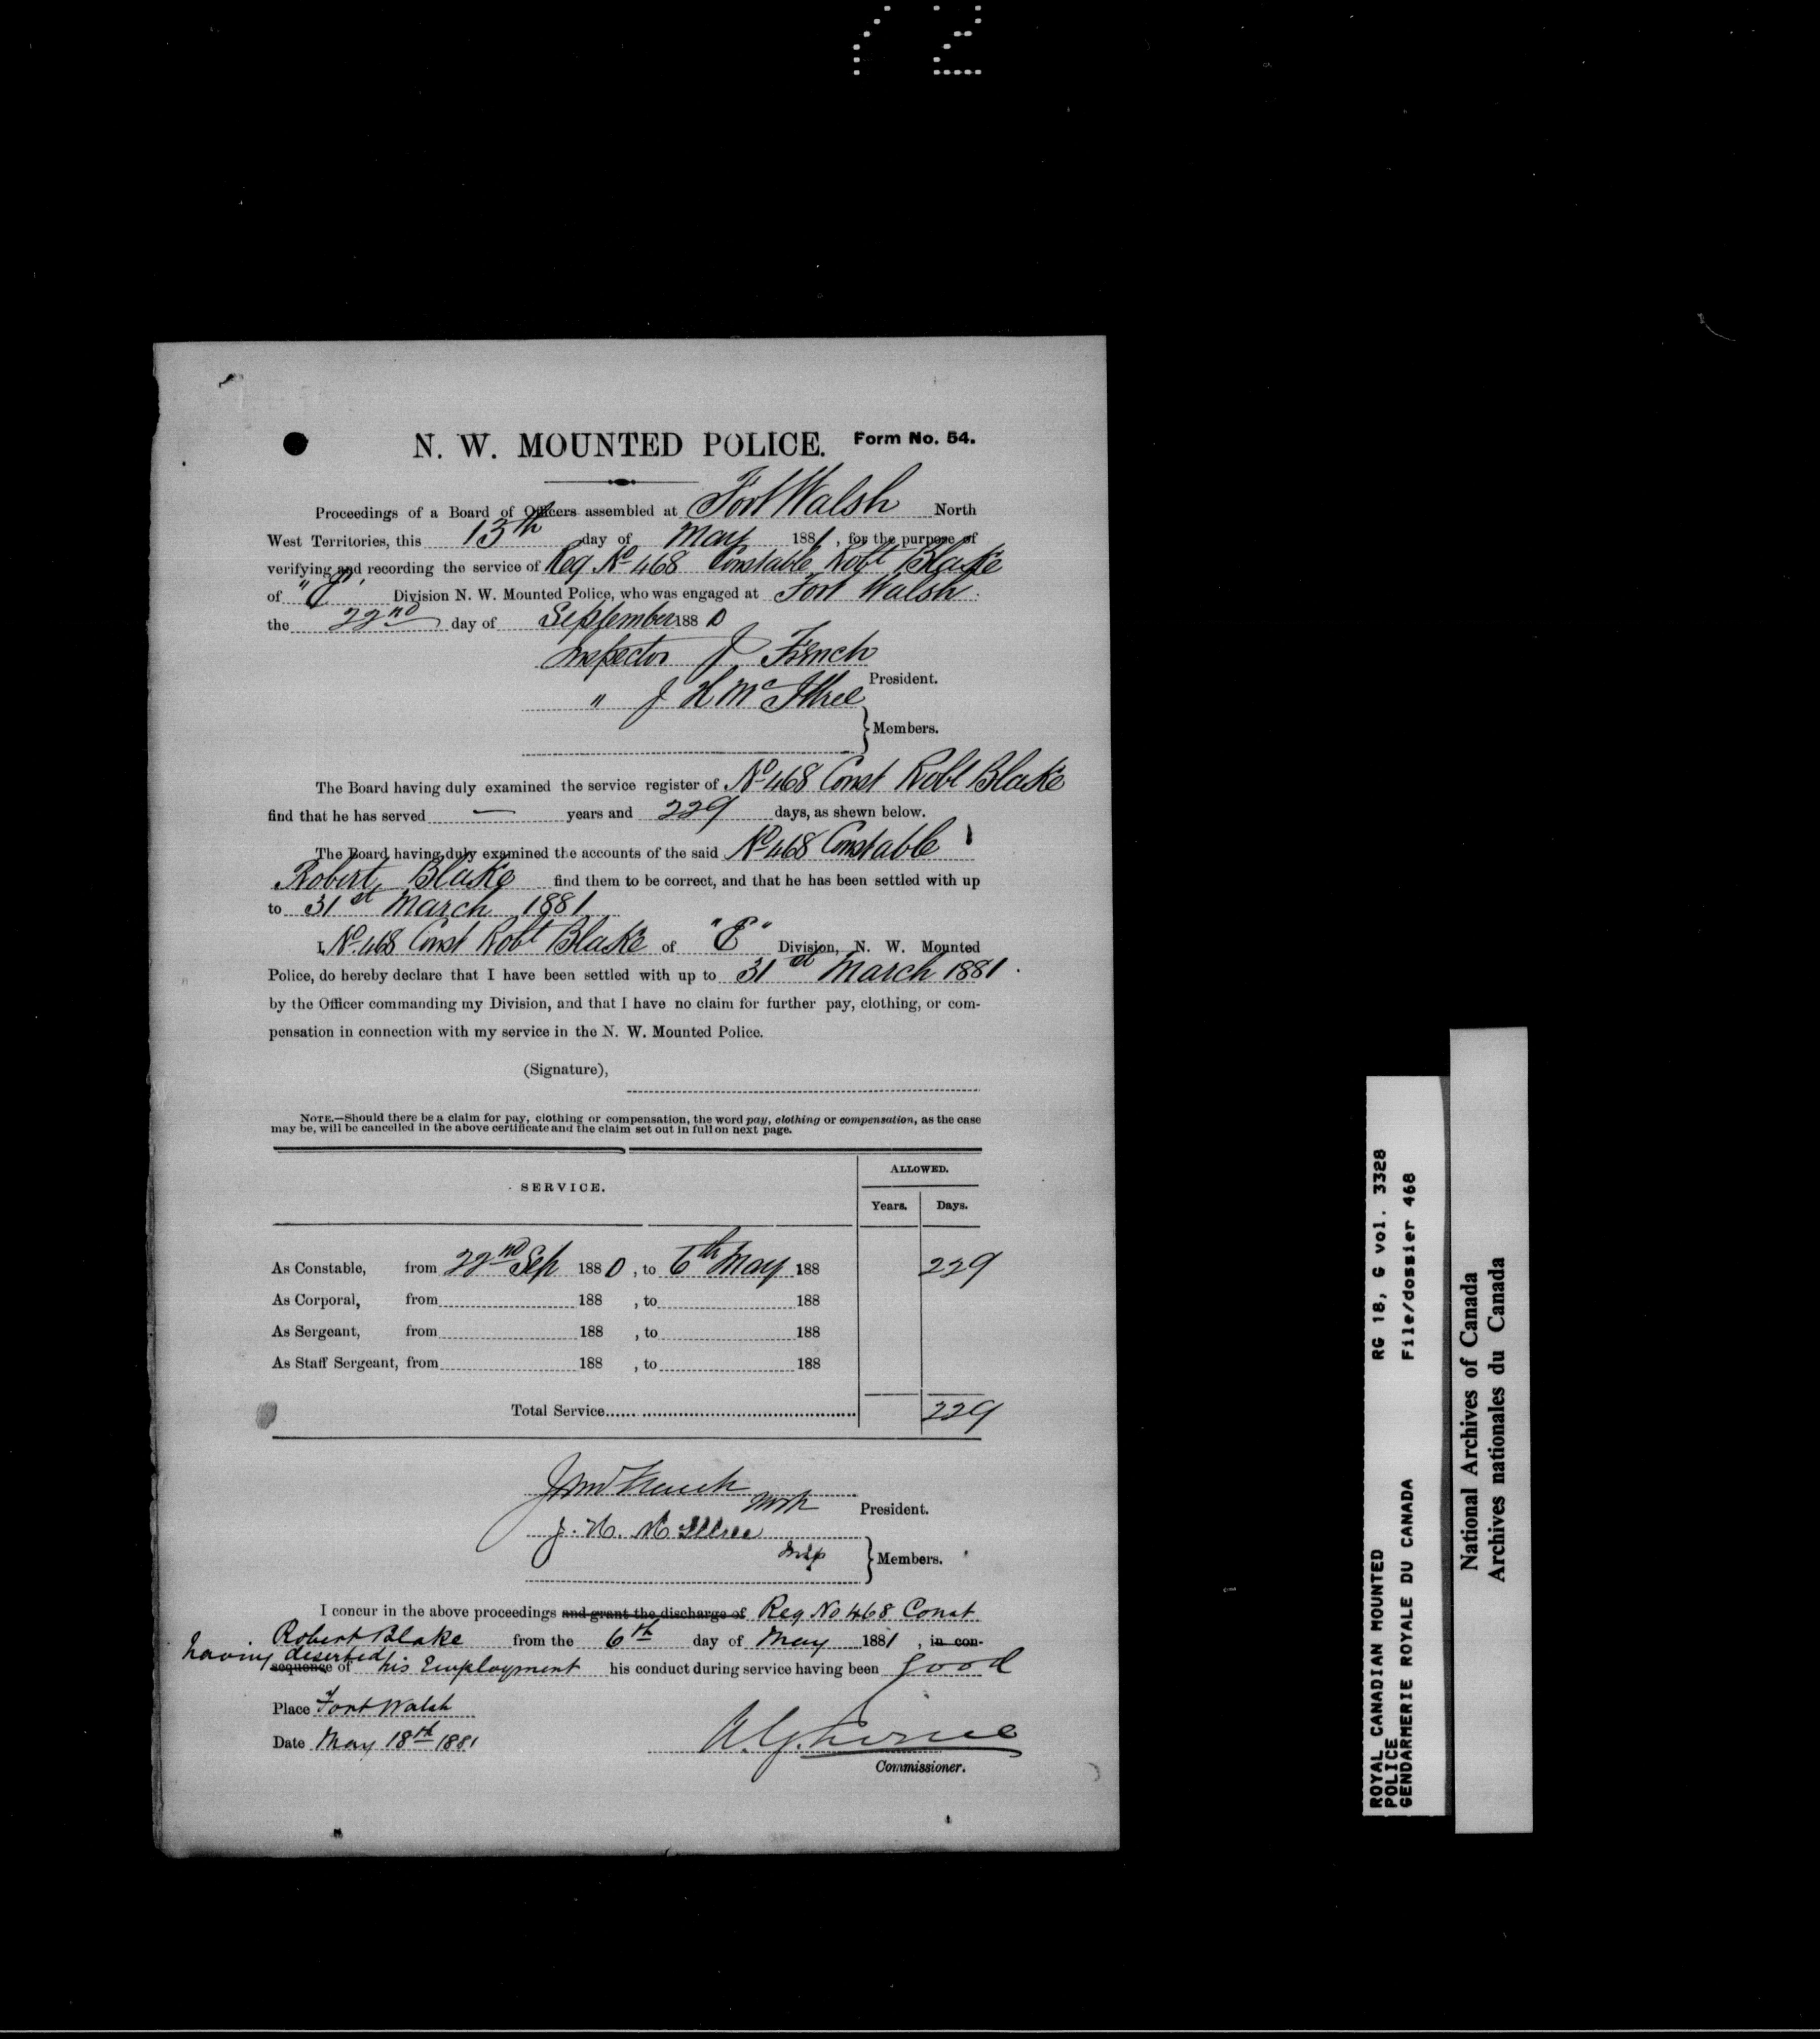 12
N. W. MOUNTED POLICE. Form No. 54.
Proceedings of a Board of Officers assembled at Fort Walsh North
West Territories, this 13th day of May 1881, for the purpose of
verifying and recording the service of Reg. No 468 Constable Robt Blake
of Division N. W. Mounted Police, who was engaged at Fort Walsh.
the 22nd day of September 1880
Inspector J French
President.
" J H McIllree
Members.
The Board having duly examined the service register of No 468 Const Robt Blake
find that he has served — years and 229 days, as shewn below.
The Board having duly examined the accounts of the said No 468 Constable
Robert Blake find them to be correct, and that he has been settled with up
to 31st March 1881
I, No. 468 Const Robt Blake of "E" Division, N. W. Mounted
Police, do hereby declare that I have been settled with up to 31st March 1881.
by the Officer commanding my Division, and that I have no claim for further pay, clothing, or com-
pensation in connection with my service in the N. W. Mounted Police.
(Signature),
NOTE.—Should there be a claim for pay, clothing or compensation, the word pay, clothing or compensation, as the case
may be, will be cancelled in the above certificate and the claim set out in full on next page.
SERVICE. ALLOWED.
Years. Days.
As Constable, from 22nd Sep 1880, to 6th May 188 229
As Corporal, from 188 , to 188
As Sergeant, from 188 , to 188
As Staff Sergeant, from 188 , to 188
Total Service 229
Jno French Insp
President.
J. H. McIllree
Insp
Members.
I concur in the above proceedings and grant the discharge of Reg No 468 Const
Robert Blake from the 6th day of May 1881, in con-
having deserted
sequence of his Employment his conduct during service having been good
Place Fort Walsh
Date May 18th 1881
A. G. Irvine
Commissioner.
ROYAL CANADIAN MOUNTED RG 18, G vol. 3328
POLICE
GENDARMERIE ROYALE DU CANADA File/dossier 468
National Archives of Canada
Archives nationales du Canada